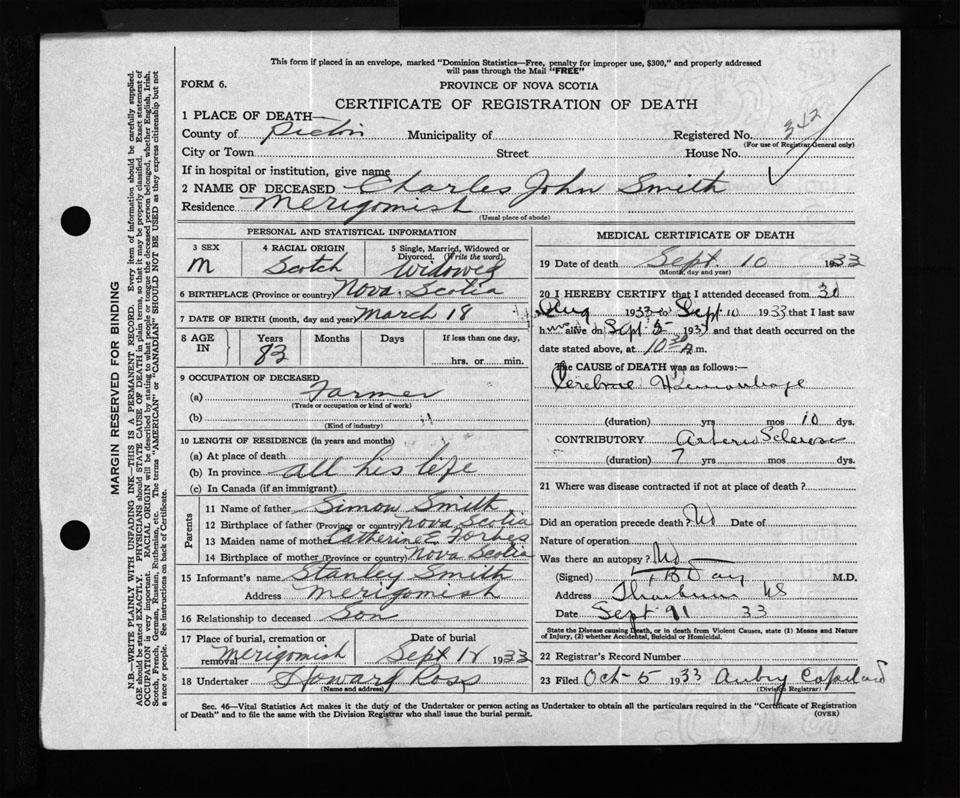 This form if placed in an envelope, marked "Dominion Statistics—Free, penalty for improper use, $300," and properly addressed
will pass through the Mail "FREE"
FORM 6.
PROVINCE OF NOVA SCOTIA
CERTIFICATE OF REGISTRATION OF DEATH
1 PLACE OF DEATH—
County of Pictou Municipality of Registered No. 342
(For use of Registrar General only)
City or Town Street House No.
If in hospital or institution, give name
2 NAME OF DECEASED Charles John Smith
Residence Merigomish
(Usual place of abode)
PERSONAL AND STATISTICAL INFORMATION
3 SEX 4 RACIAL ORIGIN 5 Single, Married, Widowed or
Divorced. (Write the word)
M Scotch Widowed
6 BIRTHPLACE (Province or country) Nova Scotia
7 DATE OF BIRTH (month, day and year) March 18
8 AGE IN Years Months Days If less than one day,
83 hrs. or min.
9 OCCUPATION OF DECEASED
(a) Farmer
(Trade or occupation or kind of work)
(b)
(Kind of industry)
10 LENGTH OF RESIDENCE (in years and months)
(a) At place of death
(b) In province all his life
(c) In Canada (if an immigrant)
Parents
11 Name of father Simon Smith
12 Birthplace of father (Province or country) Nova Scotia
13 Maiden name of mother Catherine E. Forbes
14 Birthplace of mother (Province or country) Nova Scotia
15 Informant's name Stanley Smith
Address Merigomish
16 Relationship to deceased Son
17 Place of burial, cremation or Date of burial
removal Merigomish Sept 12 1933
18 Undertaker Howard Ross
(Name and address)
MEDICAL CERTIFICATE OF DEATH
19 Date of death Sept. 10 1933
(Month, day and year)
20 I HEREBY CERTIFY that I attended deceased from 30
Aug 1933 to Sept 10 1933 that I last saw
him alive on Sept 5 1933 and that death occurred on
date stated above, at 10 30 A m.
The CAUSE OF DEATH was as follows:—
Cerebral Haemorrhage
(duration) yrs mos 10 dys.
CONTRIBUTORY Arterio Sclerosis
(duration) 7 yrs mos dys.
21 Where was disease contracted if not at place of death?
Did an operation precede death? No Date of
Nature of operation
Was there an autopsy? No
(Signed) Day M.D.
Address Thorburn NS
Date Sept 11 33
State the Disease causing Death, or in death from Violent Causes, state (1) Means and Nature
of Injury, (2) whether Accidental, Suicidal or Homicidal.
22 Registrar's Record Number
23 Filed Oct-5 1933 Aubry Copeland
(Division Registrar)
Sec. 46—Vital Statistics Act makes it the duty of the Undertaker or person acting as Undertaker to obtain all the particulars required in the "Certificate of Registration
of Death" and to file the same with the Division Registrar who shall issue the burial permit.
(OVER)
MARGIN RESERVED FOR BINDING
N.B.—WRITE PLAINLY WITH UNFADING INK—THIS IS A PERMANENT RECORD. Every item of information should be carefully supplied.
AGE should be stated EXACTLY. PHYSICIANS should STATE CAUSE OF DEATH in plain terms, so that it may be properly classified. Exact statement of
OCCUPATION is very important. RACIAL ORIGIN will be described by stating to what people or tongue the deceased person belonged, whether English, Irish,
Scotch, French, German, Russian, Ruthenian, etc. The terms "AMERICAN" or "CANADIAN" SHOULD NOT BE USED as they express citizenship but not
a race or people. See instructions on back of Certificate.